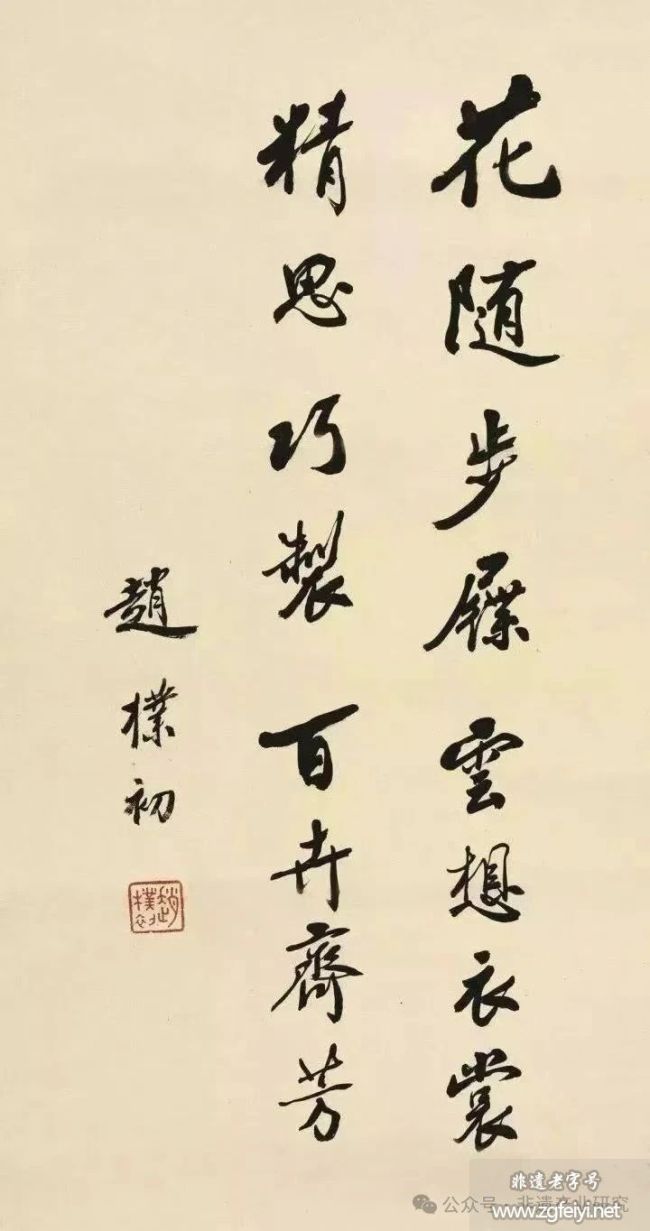 花随步屧雲想衣裳
精思巧製百卉齊芳
趙樸初
非遗老字号
公众号·非遗产业研究
www.zgfeiyi.net